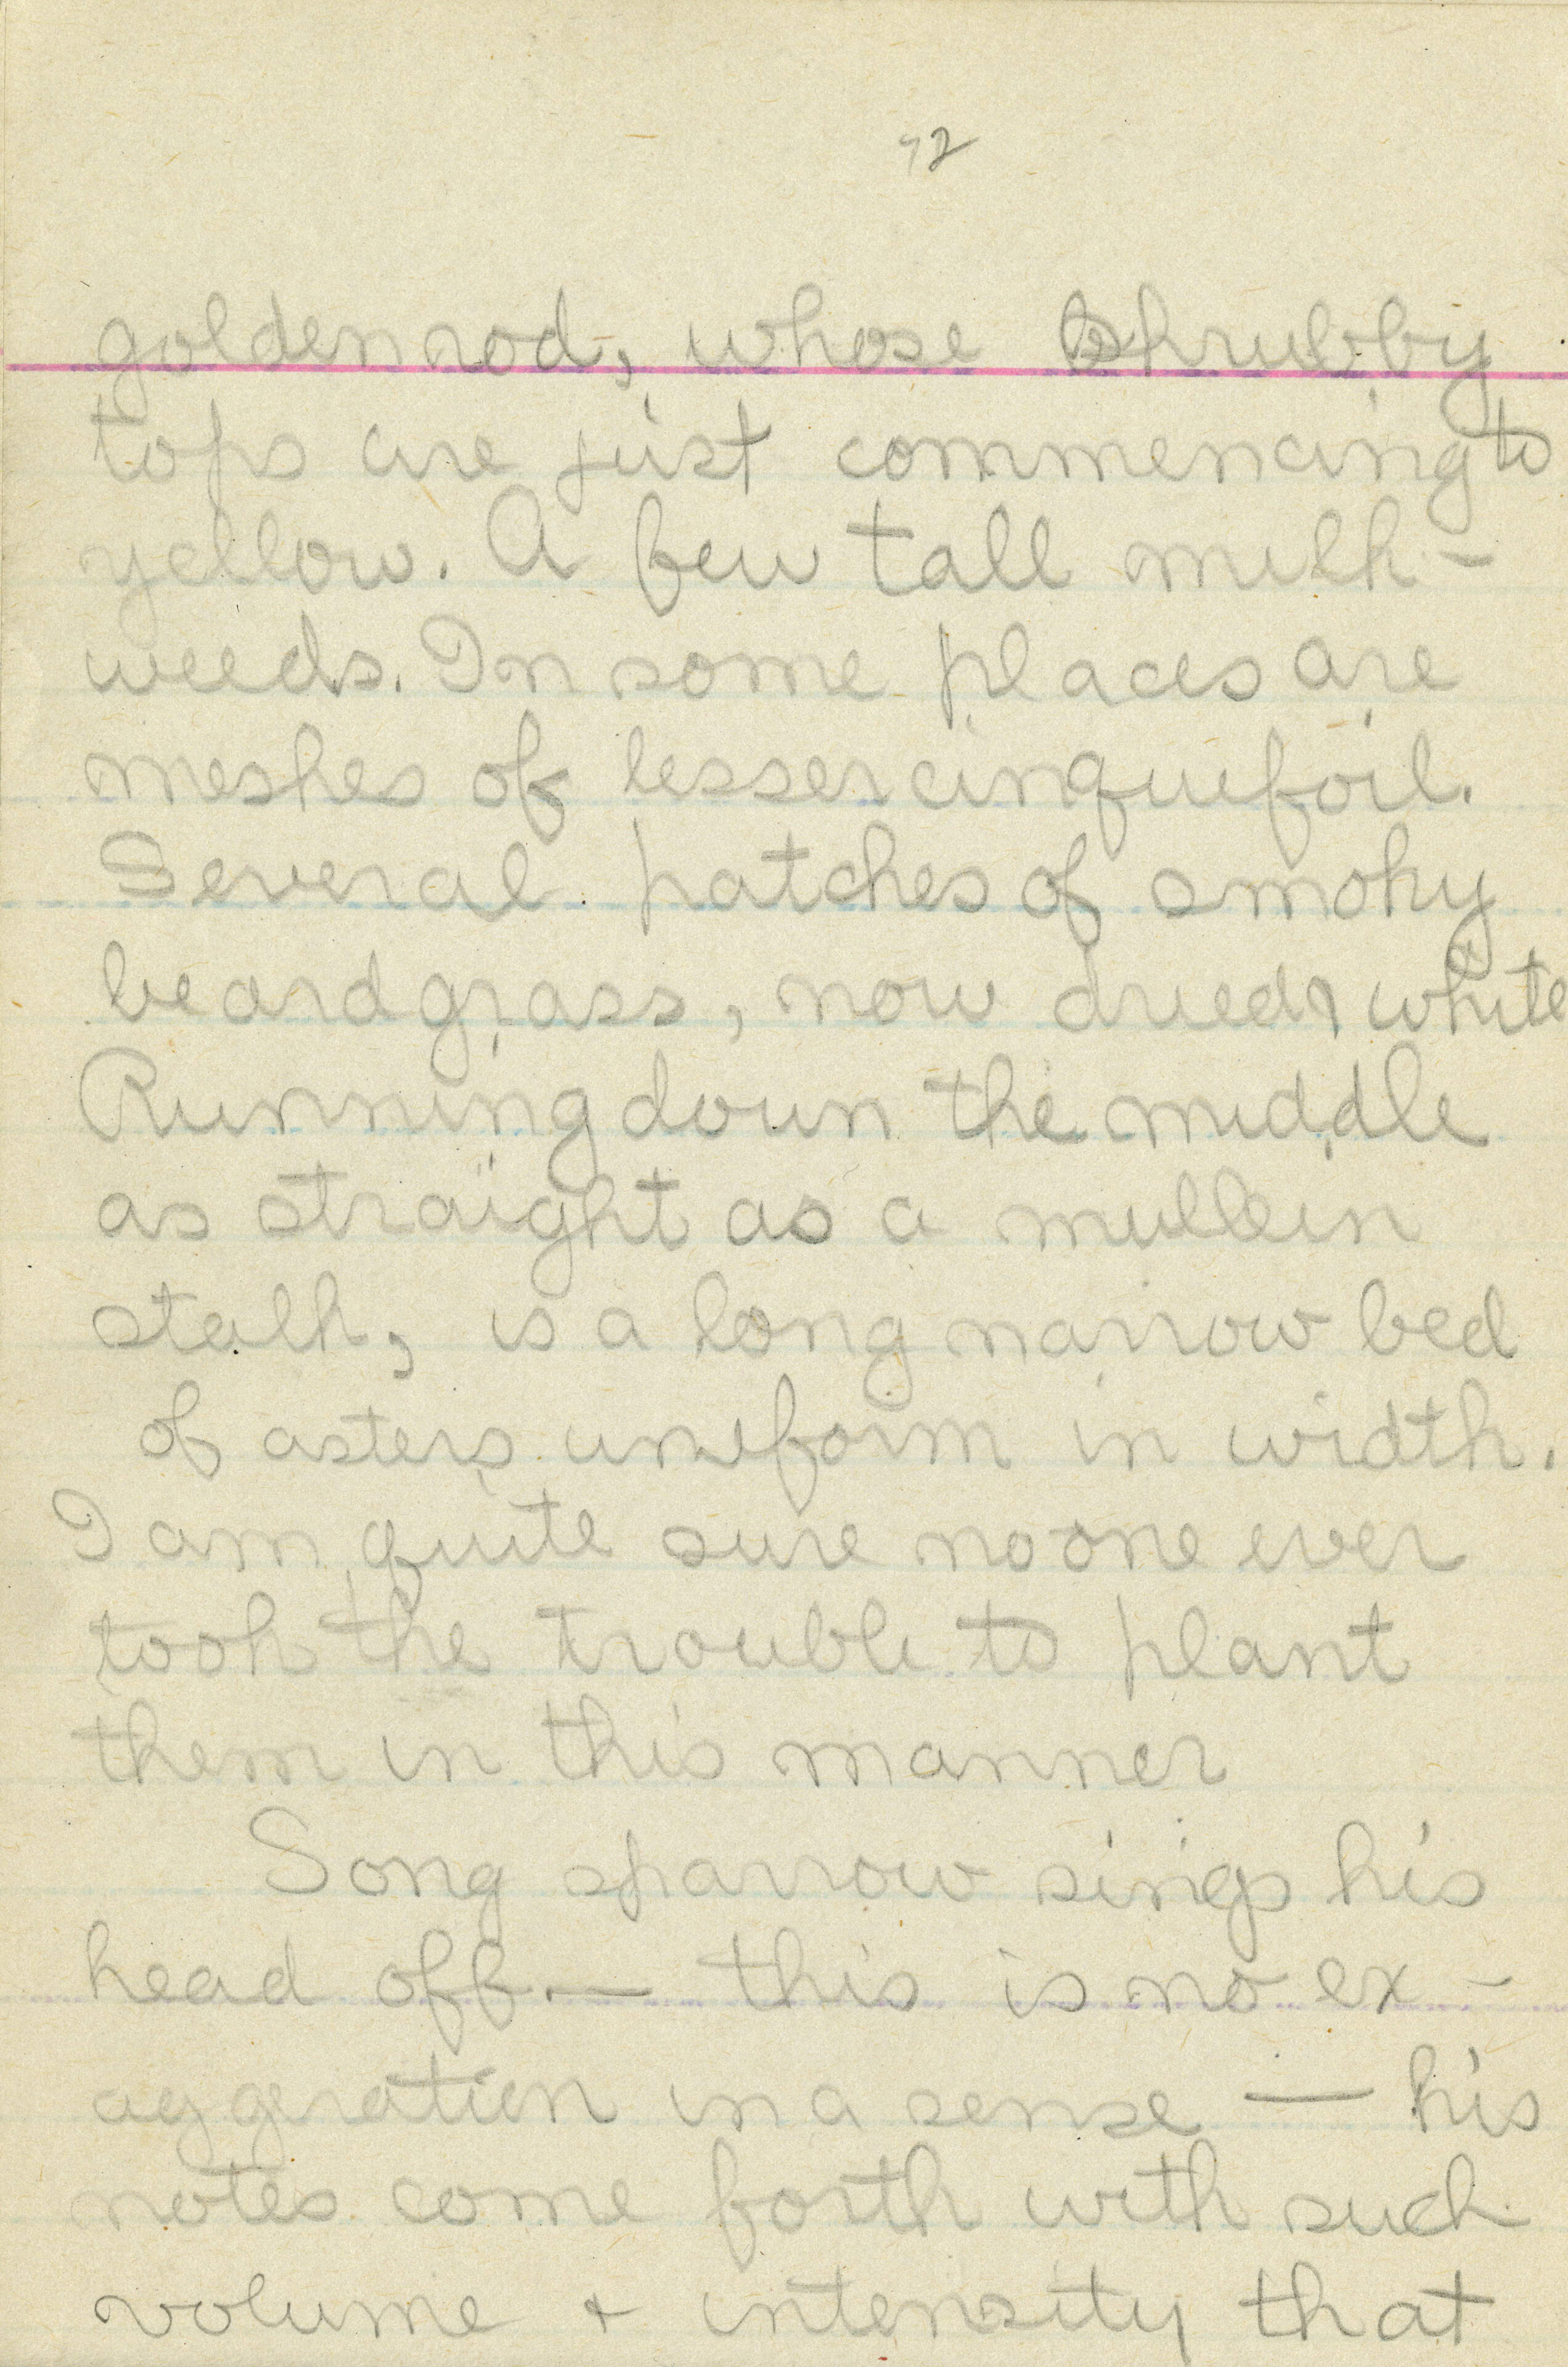 72
goldenrod, whose shrubby
tops are just commencing to
yellow. A few tall milk-
weeds. In some places are
meshes of lesser cinquefoil.
Several patches of smoky
beardgrass, now dried & white
Running down the middle
as straight as a mullein
stalk, is a long narrow bed
of asters uniform in width.
I am quite sure no one ever
took the trouble to plant
them in this manner
Song sparrow sings his
head off — this is no ex-
aggeration in a sense — his
notes come forth with such
volume + intensity that